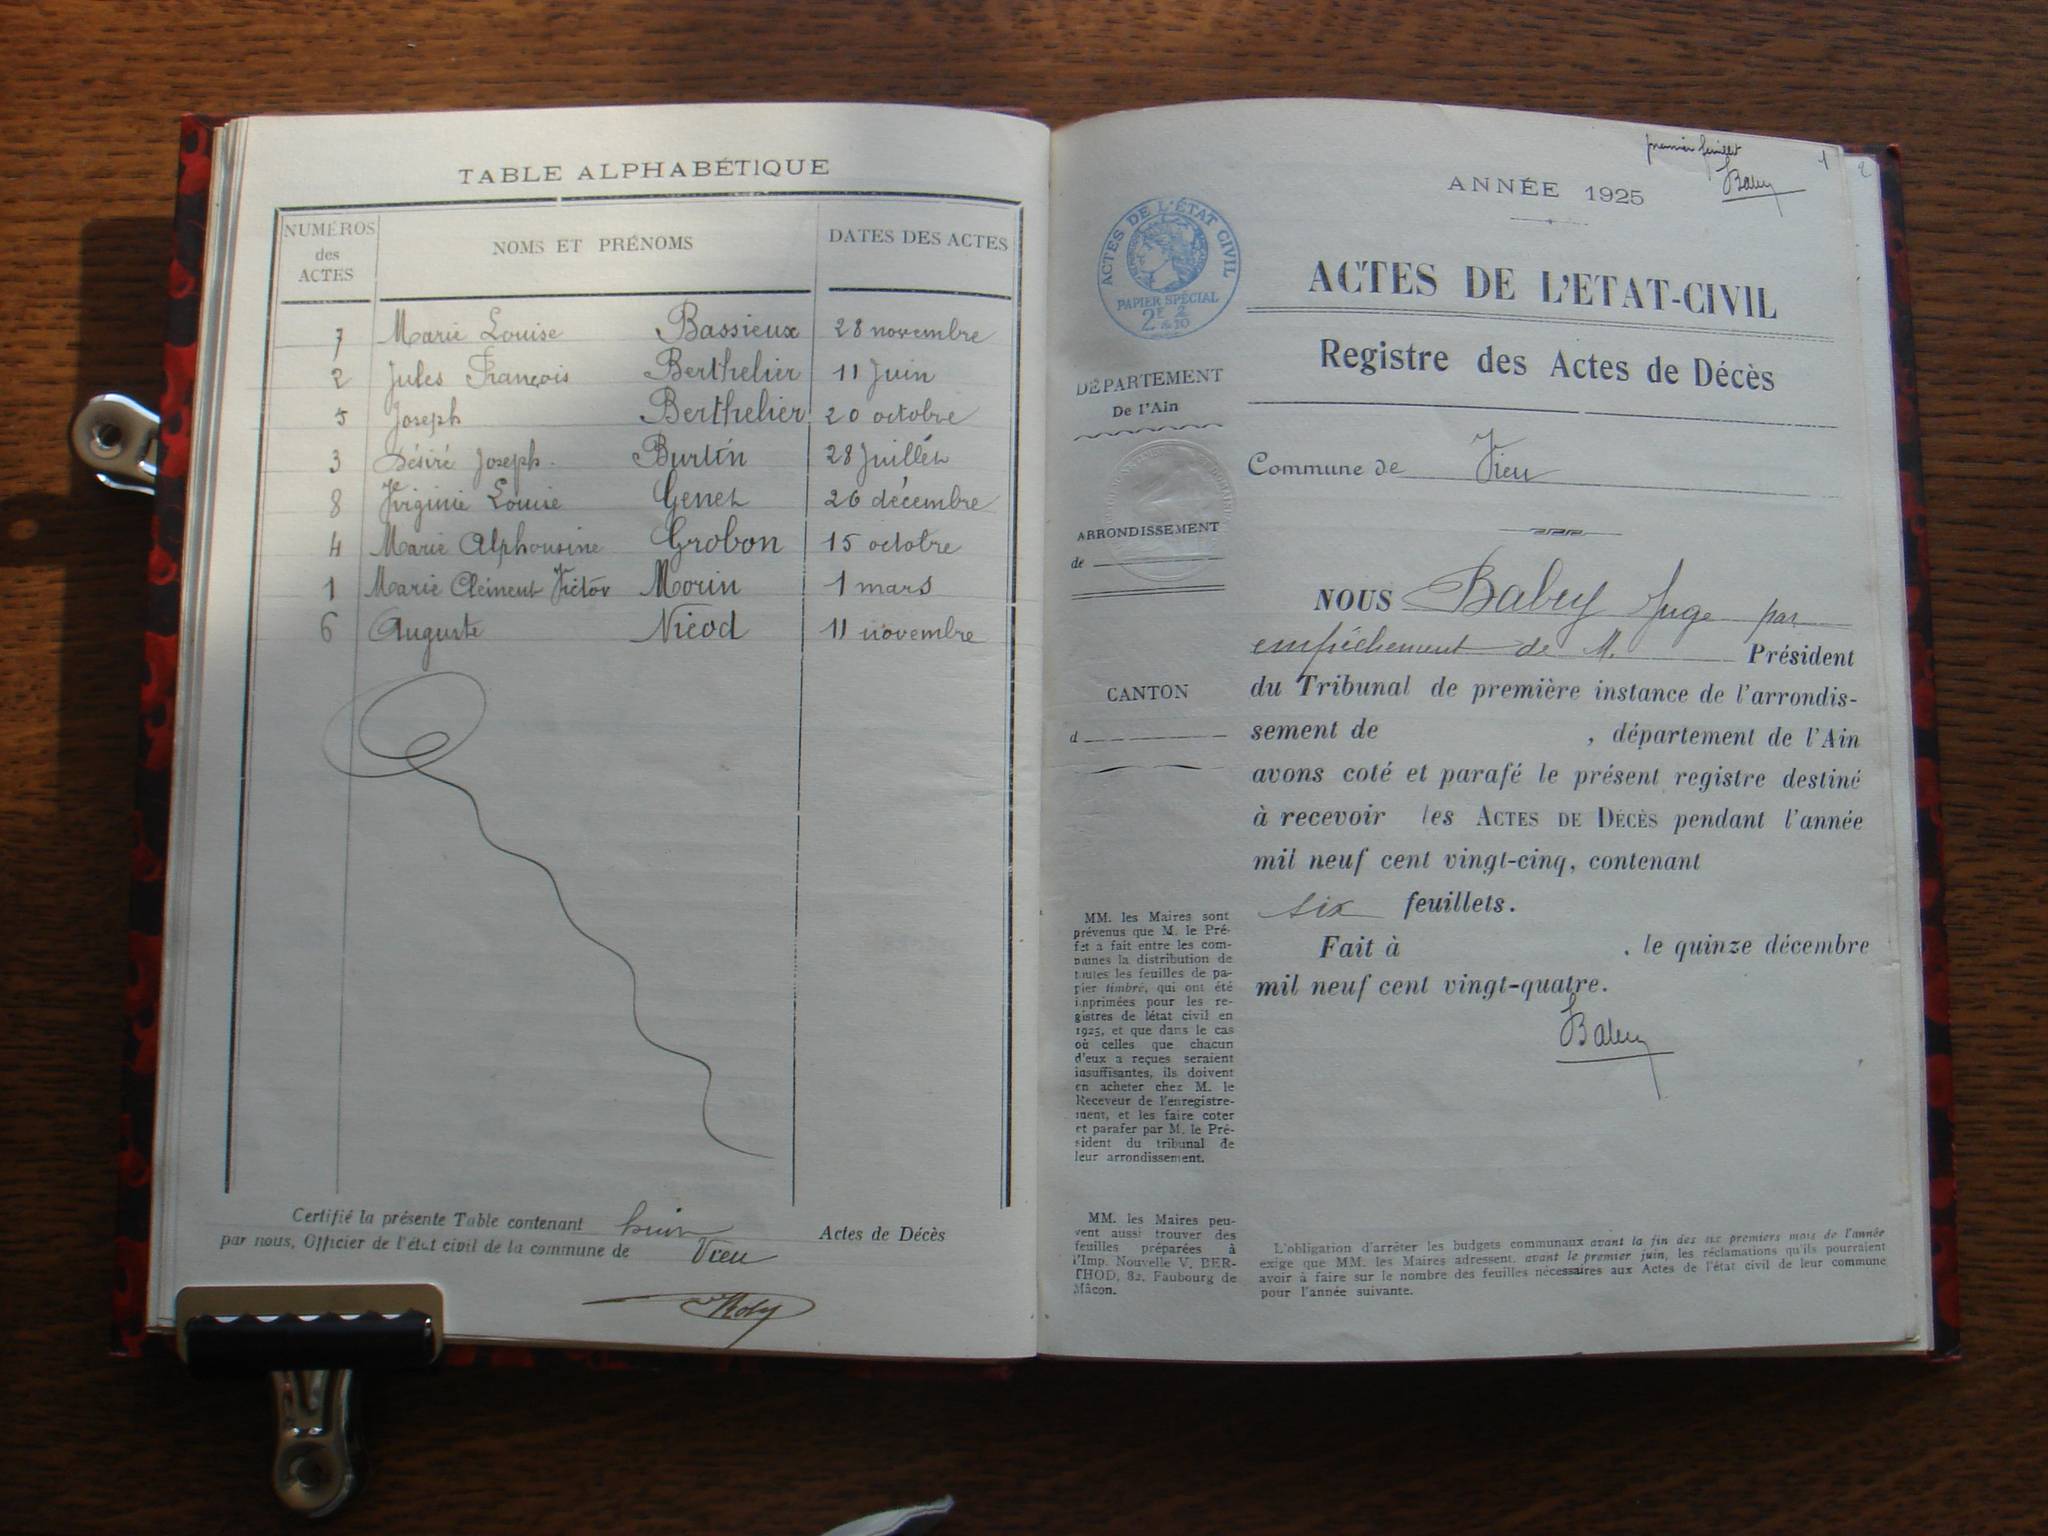 TABLE ALPHABÉTIQUE
NUMÉROS des ACTES NOMS ET PRÉNOMS DATES DES ACTES
7 Marie Louise Bassieux 28 novembre
2 Jules François Berthelier 11 Juin
5 Joseph Berthelier 20 octobre
3 Désiré Joseph Burtin 28 Juillet
8 Virginie Louise Genet 26 décembre
4 Marie Alphonsine Grobon 15 octobre
1 Marie Clément Victor Morin 1 mars
6 Auguste Nicod 11 novembre
Certifié la présente Table contenant huit Actes de Décès
par nous, Officier de l'état civil de la commune de Vieu
premier feuillet 1
2
ANNÉE 1925
ACTES DE L'ÉTAT CIVIL
PAPIER SPÉCIAL
2F 2 & 10
ACTES DE L'ETAT-CIVIL
Registre des Actes de Décès
DÉPARTEMENT
De l'Ain
Commune de Vieu
ARRONDISSEMENT
de
NOUS Babey Juge par
empêchement de M. Président
du Tribunal de première instance de l'arrondis-
sement de , département de l'Ain
avons coté et parafé le présent registre destiné
à recevoir les ACTES DE DÉCÈS pendant l'année
mil neuf cent vingt-cinq, contenant
six feuillets.
Fait à , le quinze décembre
mil neuf cent vingt-quatre.
Babey
CANTON
d
MM. les Maires sont
prévenus que M. le Pré-
fet a fait entre les com-
munes la distribution de
toutes les feuilles de pa-
pier timbré, qui ont été
imprimées pour les re-
gistres de létat civil en
1925, et que dans le cas
où celles que chacun
d'eux a reçues seraient
insuffisantes, ils doivent
en acheter chez M. le
Receveur de l'enregistre-
ment, et les faire coter
et parafer par M. le Pré-
sident du tribunal de
leur arrondissement.
MM. les Maires peu-
vent aussi trouver des
feuilles préparées à
l'Imp. Nouvelle V. BER-
THOD, 82, Faubourg de
Mâcon.
L'obligation d'arrêter les budgets communaux avant la fin des six premiers mois de l'année
exige que MM. les Maires adressent, avant le premier juin, les réclamations qu'ils pourraient
avoir à faire sur le nombre des feuilles nécessaires aux Actes de l'état civil de leur commune
pour l'année suivante.